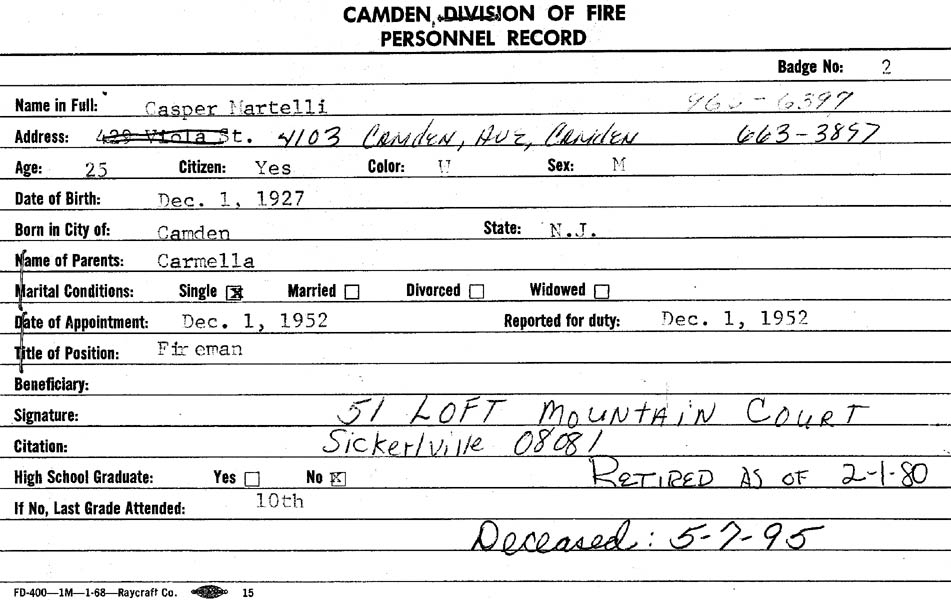 CAMDEN, DIVISION OF FIRE
PERSONNEL RECORD
Badge No: 2
Name in Full: Casper Martelli 966-6397
Address: 429 Viola St. 4103 CAMDEN, AVE, CAMDEN 663-3897
Age: 25 Citizen: Yes Color: W Sex: M
Date of Birth: Dec. 1, 1927
Born in City of: Camden State: N.J.
Name of Parents: Carmella
Marital Conditions: Single X Married Divorced Widowed
Date of Appointment: Dec. 1, 1952 Reported for duty: Dec. 1, 1952
Title of Position: Fireman
Beneficiary:
Signature: 51 LOFT MOUNTAIN COURT
Citation: Sickerlville 08081
High School Graduate: Yes No X RETIRED AS OF 2-1-80
If No, Last Grade Attended: 10th
Deceased: 5-7-95
FD-400—1M—1-68—Raycraft Co. 15